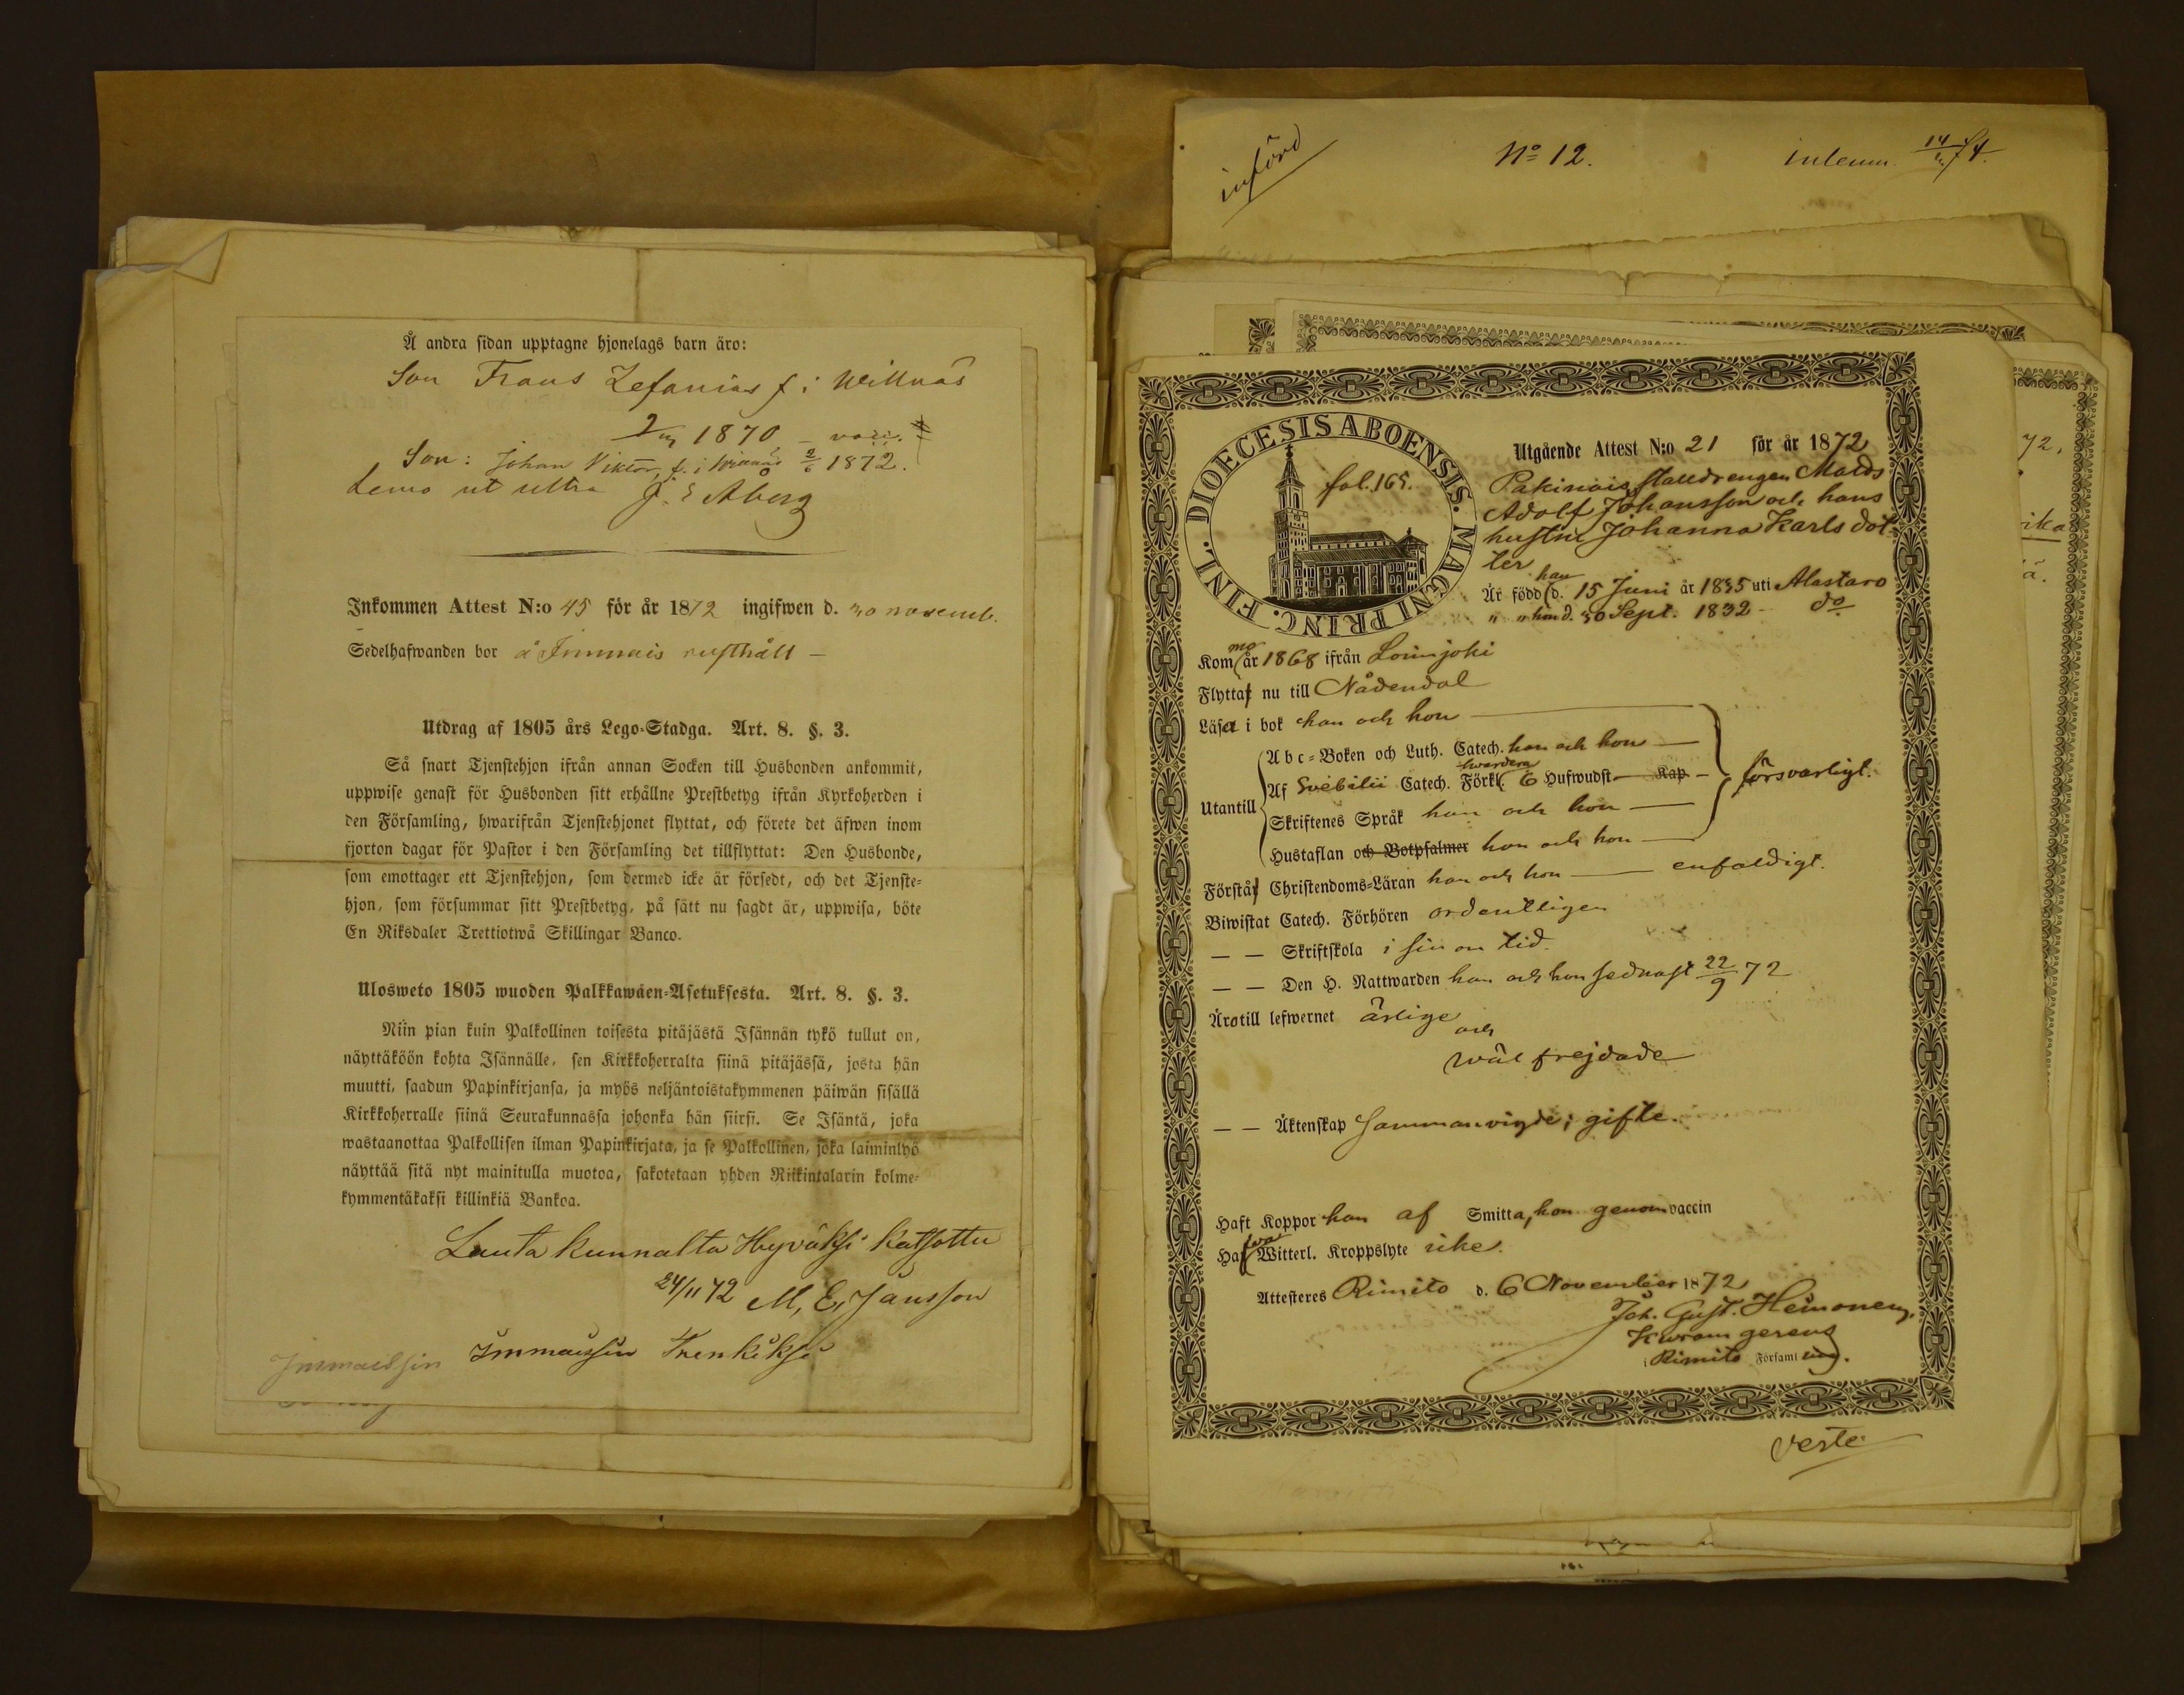 Å andra sidan upptagne hjonelags barn äro:
Son Frans Zefanias f. i Willnäs
1870 - vacc.
Son: Johan Viktor, f. i Willnäs 2/6 1872.
Lemo ut ultra J. E Åberg
Inkommen Attest N:o 45 för år 1872 ingifwen d. 30 novemb.
Sedelhafwanden bor å Immais rusthåll —
Utdrag af 1805 års Lego-Stadga. Art. 8. §. 3.
Så snart Tjenstehjon ifrån annan Socken till Husbonden ankommit,
uppwise genast för Husbonden sitt erhållne Prestbetyg ifrån Kyrkoherden i
den Församling, hwarifrån Tjenstehjonet flyttat, och förete det äfwen inom
fjorton dagar för Pastor i den Församling det tillflyttat: Den Husbonde,
som emottager ett Tjenstehjon, som dermed icke är försedt, och det Tjenste-
hjon, som försummar sitt Prestbetyg, på sätt nu sagdt är, uppwisa, böte
En Riksdaler Trettiotwå Skillingar Banco.
Ulosweto 1805 wuoden Palkkawäen-Asetuksesta. Art. 8. §. 3.
Niin pian kuin Palkollinen toisesta pitäjästä Isännän tykö tullut on,
näyttäköön kohta Isännälle, sen Kirkkoherralta siinä pitäjässä, josta hän
muutti, saadun Papinkirjansa, ja myös neljäntoistakymmenen päiwän sisällä
Kirkkoherralle siinä Seurakunnassa johonka hän siirsi. Se Isäntä, joka
wastaanottaa Palkollisen ilman Papinkirjata, ja se Palkollinen, joka laiminlyö
näyttää sitä nyt mainitulla muotoa, sakotetaan yhden Riikintalarin kolme-
kymmentäkaksi killinkiä Bankoa.
Lautakunnalta Hyväksi katsottu
24/11 72 M, E, Jansson
Immaisin Trenkiksi
Immaisin
införd
No 12.
inlemn. 74.
DIOECESIS ABOENSIS. MAGNI PRINC. FINL.
fol. 165.
Utgående Attest N:o 21 för år 1872
Pakinais stalldrengen Matds
Adolf Johansson och hans
hustru Johanna Karlsdot
ter
han
Är född d. 15 Juni år 1835 uti Alastaro
" " hon d. 30 Sept. 1832 - do
Kommo år 1868 ifrån Loimjoki
Flytta nu till Nådendal
Läsa i bok han och hon
Utantill
Abc-Boken och Luth. Catech. han och hon
Af Svebilii Catech. Förkl. hwardera 6 Hufwudst — Kap —
Skriftenes Språk han och hon
Hustaflan och Botpsalmer han och hon
försvarligt.
Förstå Christendoms-Läran han och hon — enfaldigt.
Biwistat Catech. Förhören ordentligen
— — Skriftskola i sinom tid.
— — Den H. Nattwarden han och hon sednast 22/9 72
Äro till lefwernet ärlige
och
wäl frejdade
— — Äktenskap Sammanvigde; gifte.
Haft Koppor han af Smitta, hon genom vaccin
Hafwa Witterl. Kroppslyte icke.
Attesteres Rimito d. 6 November 1872
Joh. Gust. Heinonen,
Kuram gerens
i Rimito Församling.
verte
72,
ika